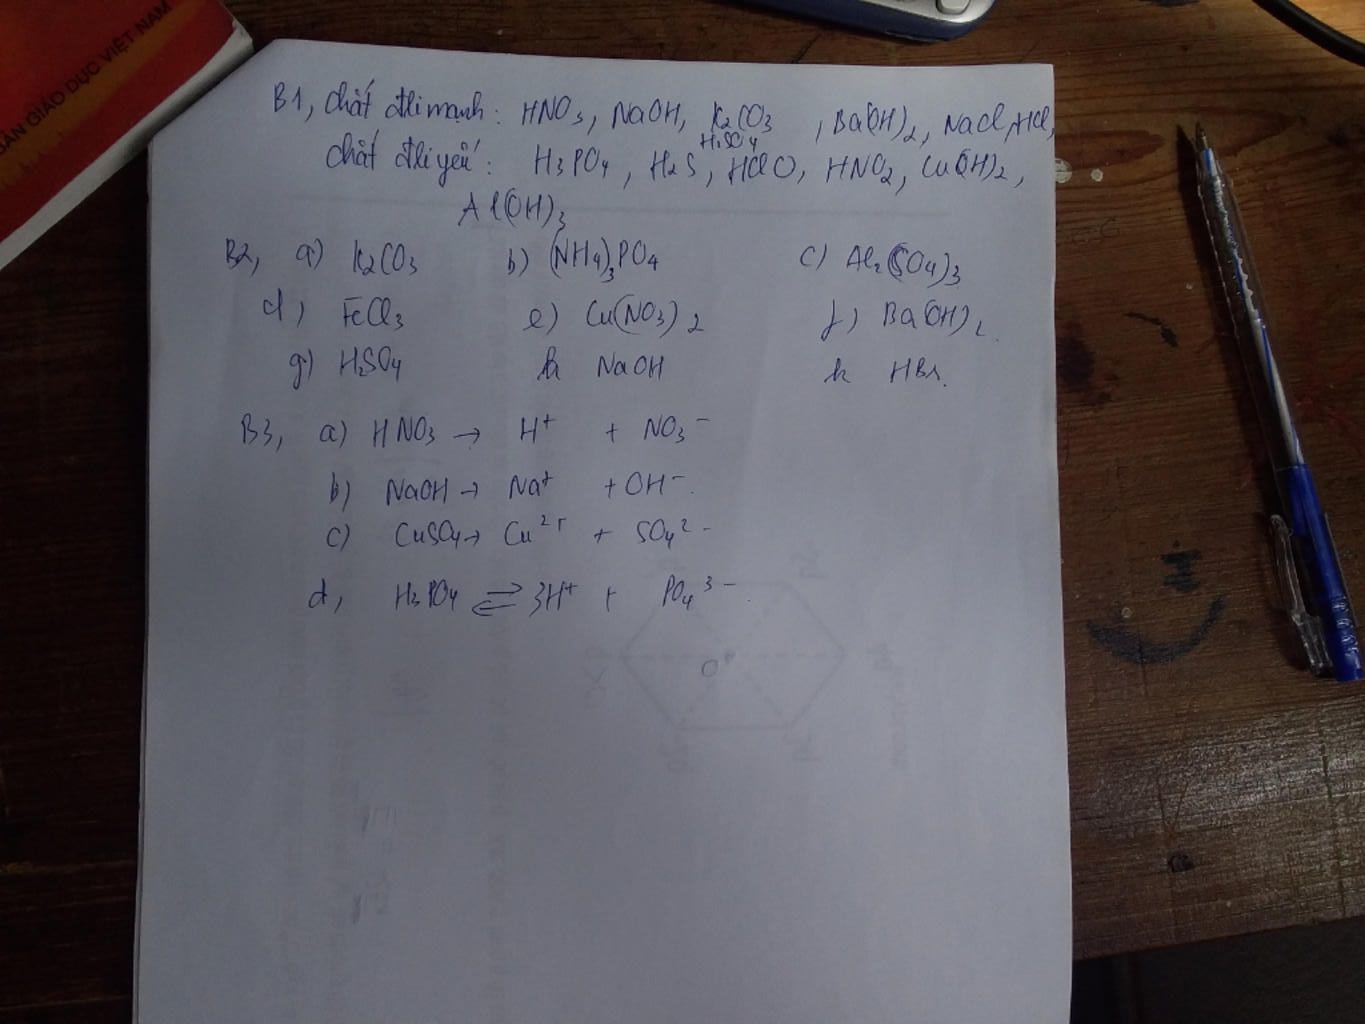 BẢN GIÁO DỤC VIỆT NAM
B1, Chất đli mạnh: HNO3, NaOH, K2CO3, Ba(OH)2, NaCl, HCl,
H2SO4
Chất đli yếu: H3PO4, H2S, HClO, HNO2, Cu(OH)2,
Al(OH)3
B2, a) K2CO3 b) (NH4)3PO4 c) Al2(SO4)3
d) FeCl3 e) Cu(NO3)2 f) Ba(OH)2
g) H2SO4 h NaOH k HBr.
B3, a) HNO3 → H+ + NO3-
b) NaOH → Na+ + OH-.
c) CuSO4 → Cu2+ + SO42-
d, H3PO4 ⇌ 3H+ + PO43-.
O